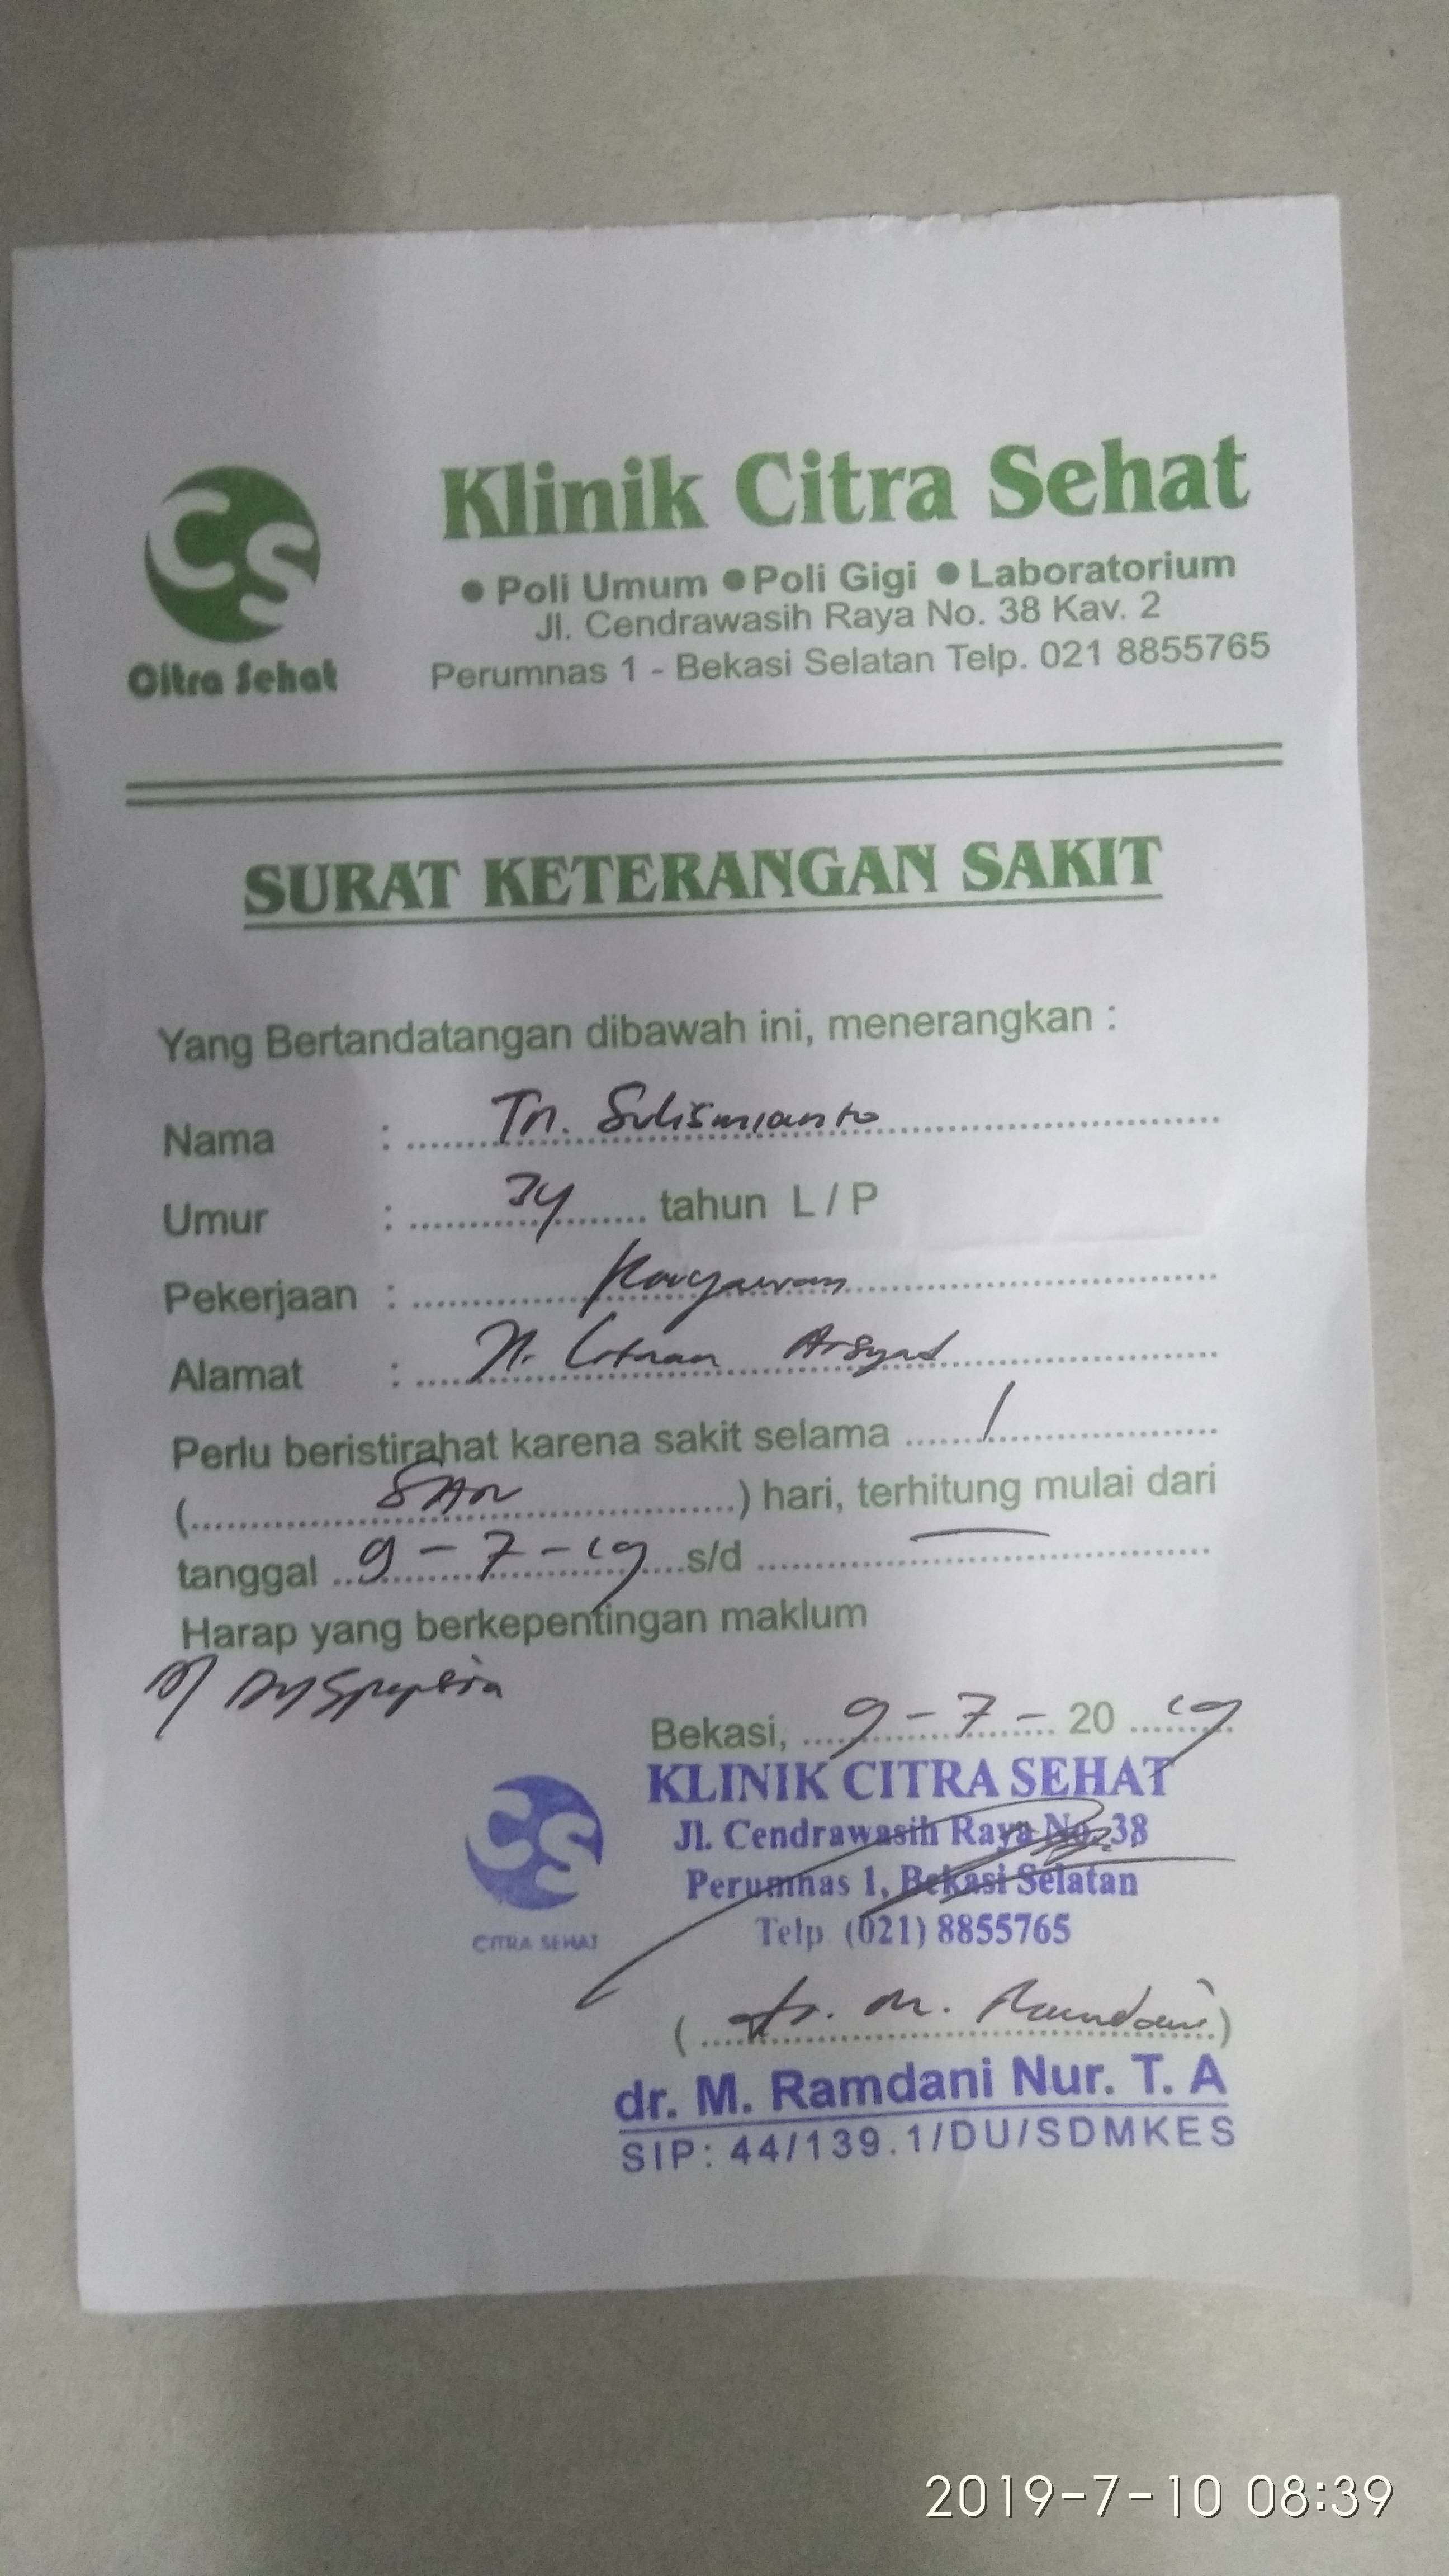 CS
Citra Sehat
Klinik Citra Sehat
● Poli Umum ● Poli Gigi ● Laboratorium
Jl. Cendrawasih Raya No. 38 Kav. 2
Perumnas 1 - Bekasi Selatan Telp. 021 8855765
SURAT KETERANGAN SAKIT
Yang Bertandatangan dibawah ini, menerangkan :
Nama : Tn. Sulismianto
Umur : 34 tahun L / P
Pekerjaan : Karyawan
Alamat : Arsyad
Perlu beristirahat karena sakit selama 1
( SAtu ) hari, terhitung mulai dari
tanggal 9-7-19 s/d —
Harap yang berkepentingan maklum
Dyspepsia
Bekasi, 9-7-2019
KLINIK CITRA SEHAT
Jl. Cendrawasih Raya No. 38
Perumnas 1, Bekasi Selatan
Telp (021) 8855765
CS
CITRA SEHAT
( dr. M. Ramdani )
dr. M. Ramdani Nur. T. A
SIP: 44/139.1/DU/SDMKES
2019-7-10 08:39